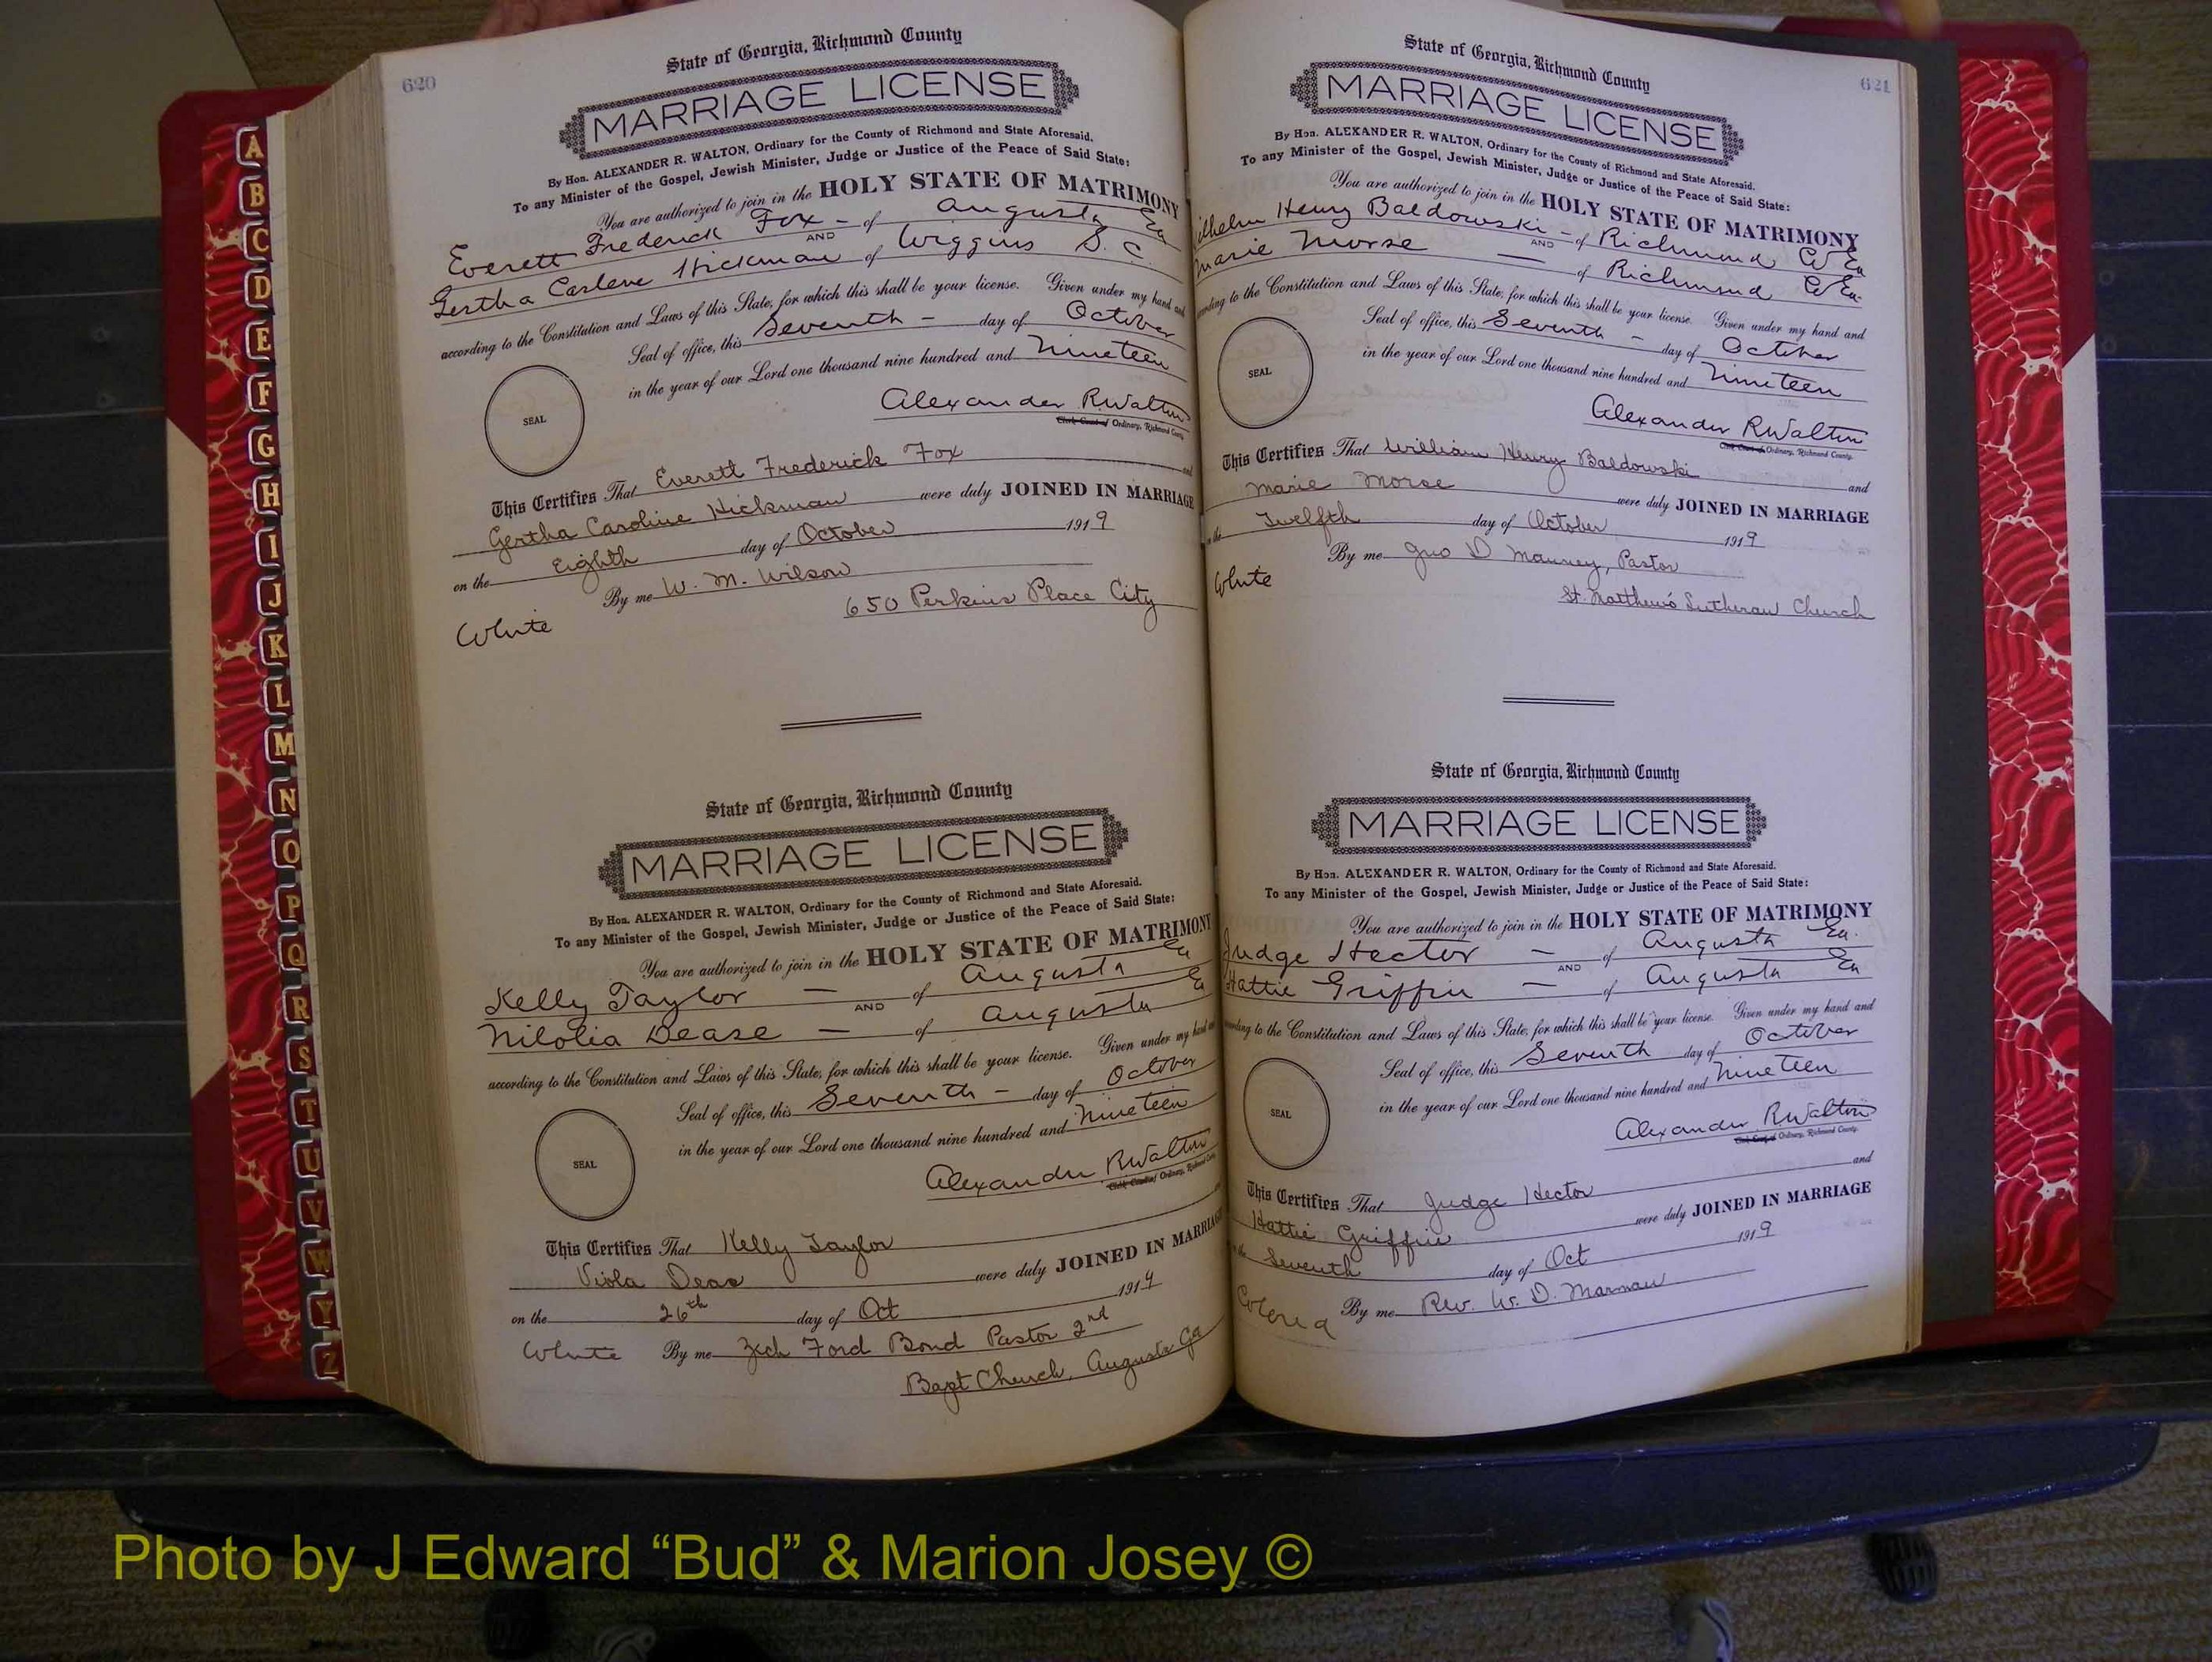 620
State of Georgia, Richmond County
MARRIAGE LICENSE
By Hon. ALEXANDER R. WALTON, Ordinary for the County of Richmond and State Aforesaid.
To any Minister of the Gospel, Jewish Minister, Judge or Justice of the Peace of Said State:
You are authorized to join in the HOLY STATE OF MATRIMONY
Everett Frederick Fox - of Augusta Ga
AND
Gertha Carlene Hickman of Wiggins S. C.
according to the Constitution and Laws of this State, for which this shall be your license. Given under my hand and
Seal of office, this Seventh - day of October
in the year of our Lord one thousand nine hundred and Nineteen
SEAL
Alexander R Walton
Clerk Court of Ordinary, Richmond County
This Certifies That Everett Frederick Fox and
Gertha Caroline Hickman were duly JOINED IN MARRIAGE
on the Eighth day of October 1919
By me W. M. Wilson
650 Perkins Place City
White
State of Georgia, Richmond County
MARRIAGE LICENSE
By Hon. ALEXANDER R. WALTON, Ordinary for the County of Richmond and State Aforesaid.
To any Minister of the Gospel, Jewish Minister, Judge or Justice of the Peace of Said State:
You are authorized to join in the HOLY STATE OF MATRIMONY
Kelly Taylor - of Augusta Ga
AND
Nilolia Dease - of Augusta Ga
according to the Constitution and Laws of this State, for which this shall be your license. Given under my hand and
Seal of office, this Seventh - day of October
in the year of our Lord one thousand nine hundred and Nineteen
SEAL
Alexander R Walton
Clerk Court of Ordinary, Richmond County
This Certifies That Kelly Taylor
Viola Deas were duly JOINED IN MARRIAGE
on the 26th day of Oct 1914
White By me Zech Ford Bond Pastor 2nd
Bapt Church, Augusta Ga
621
State of Georgia, Richmond County
MARRIAGE LICENSE
By Hon. ALEXANDER R. WALTON, Ordinary for the County of Richmond and State Aforesaid.
To any Minister of the Gospel, Jewish Minister, Judge or Justice of the Peace of Said State:
You are authorized to join in the HOLY STATE OF MATRIMONY
Wilhelm Henry Baldowski - of Richmond Co Ga
AND
Marie Morse - of Richmond Co Ga.
according to the Constitution and Laws of this State, for which this shall be your license. Given under my hand and
Seal of office, this Seventh - day of October
in the year of our Lord one thousand nine hundred and Nineteen
SEAL
Alexander R Walton
Clerk Court of Ordinary, Richmond County.
This Certifies That William Henry Baldowski and
Marie Morse were duly JOINED IN MARRIAGE
on the Twelfth day of October 1919
By me Geo D Mauney, Pastor
White
St. Matthew's Lutheran Church
State of Georgia, Richmond County
MARRIAGE LICENSE
By Hon. ALEXANDER R. WALTON, Ordinary for the County of Richmond and State Aforesaid.
To any Minister of the Gospel, Jewish Minister, Judge or Justice of the Peace of Said State:
You are authorized to join in the HOLY STATE OF MATRIMONY
Judge Hector - of Augusta Ga.
AND
Hattie Griffin - of Augusta Ga
according to the Constitution and Laws of this State, for which this shall be your license. Given under my hand and
Seal of office, this Seventh day of October
in the year of our Lord one thousand nine hundred and Nineteen
SEAL
Alexander R Walton
Clerk Court of Ordinary, Richmond County.
This Certifies That Judge Hector and
Hattie Griffin were duly JOINED IN MARRIAGE
on the Seventh day of Oct 1919
Colored By me Rev. W. D.
A
B
C
D
E
F
G
H
I
J
K
L
M
N
O
P
Q
R
S
T
U
V
W
Y
Z
Photo by J Edward “Bud” & Marion Josey ©